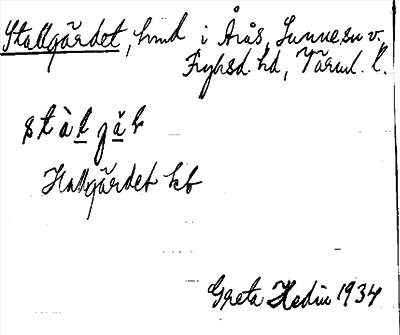 Stallgärdet, hmd i Årås, Sunne sn v.
Fryksd. hd, Värml. l.
stàḷ gä̀ḷ
Hallgärdet kb
Greta Hedin 1934